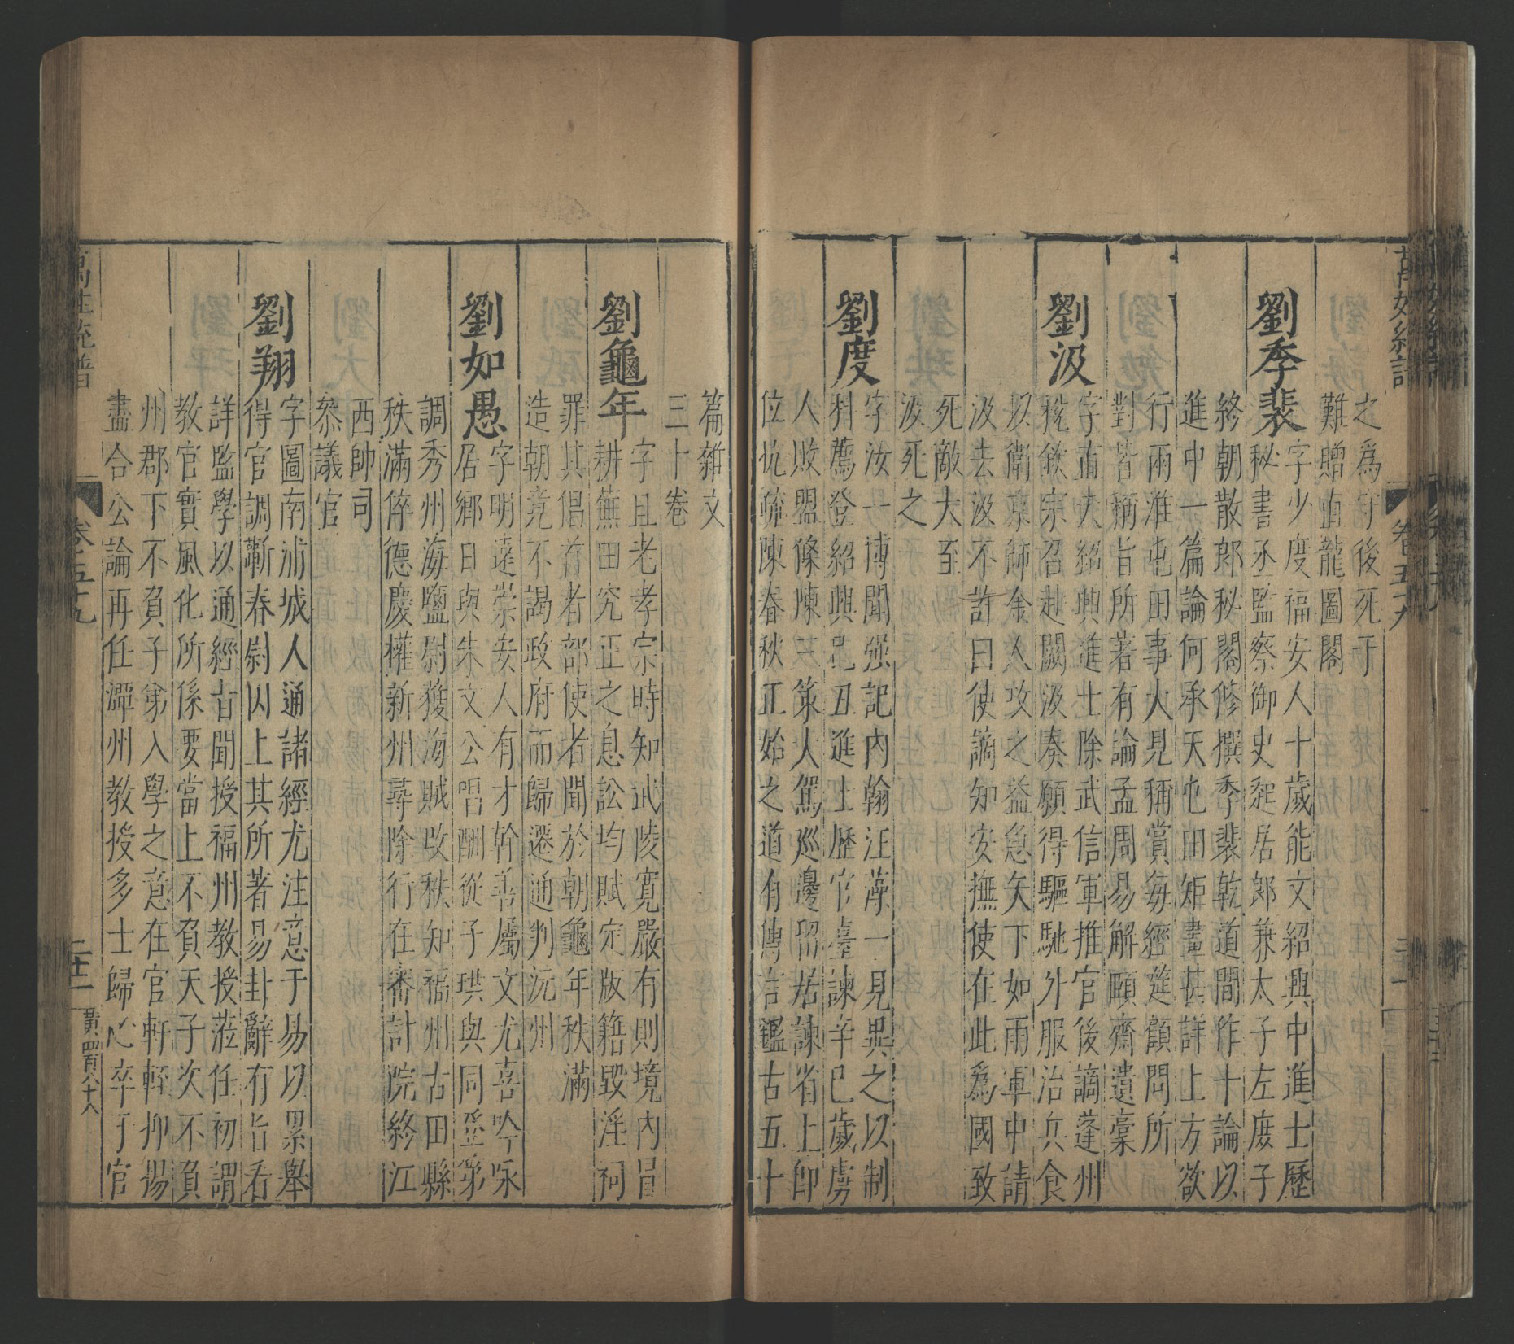 之爲守後死于
難贈直龍圖閣
劉季裴
字少度福安人十歲能文紹興中進士歷
秘書丞監察御史起居郎兼太子左庶子
終朝散郎秘閣修撰季裴乾道間作十論以
進中一篇論何承天屯田矩畫甚詳上方欲
行兩淮屯田事大見稱賞每經筵顧問所
對皆稱旨所著有論孟周易解頤齋遺稾
劉汲
字直夫紹興進士除武信軍推官後謫蓬州
稅欽宗召赴闕汲奏願得驅馳外服治兵食
以衛京師金人攻之益急矢下如雨軍中請
汲去汲不許曰使謫知安撫使在此爲國致
死敵大至
汲死之
劉度
字汝一博聞强記內翰汪藻一見異之以制
科薦登紹興己丑進士歷官臺諫辛巳歲虜
人敗盟條陳三策人駕巡邊留居諫省上卽
位抗疏陳春秋正始之道有傳言鑑古五十
篇雜文
三十卷
劉龜年
字且老孝宗時知武陵寛嚴有則境內皆
耕蕪田究正之息訟均賦定版籍毀淫祠
罪其倡若者部使者聞於朝龜年秩滿
造朝竟不謁政府而歸遷通判沅州
劉如愚
字明遠崇安人有才幹善屬文尤喜吟咏
居鄉日與朱文公唱酬從子珙與同登第
調秀州海鹽尉獲海賊改秩知福州古田縣
秩滿倅德慶權新州尋除行在審計院終江
西帥司
叅議官
劉翔
字圖南浦城人通諸經尤注意于易以累舉
得官調蘄春尉囚上其所著易卦辭有旨看
詳監學以通經古聞授福州教授蒞任初謂
教官實風化所係要當上不負天子次不負
州郡下不負子弟入學之意在官軒輊抑揚
盡合公論再任潭州教授多士歸心卒于官
卷五十九